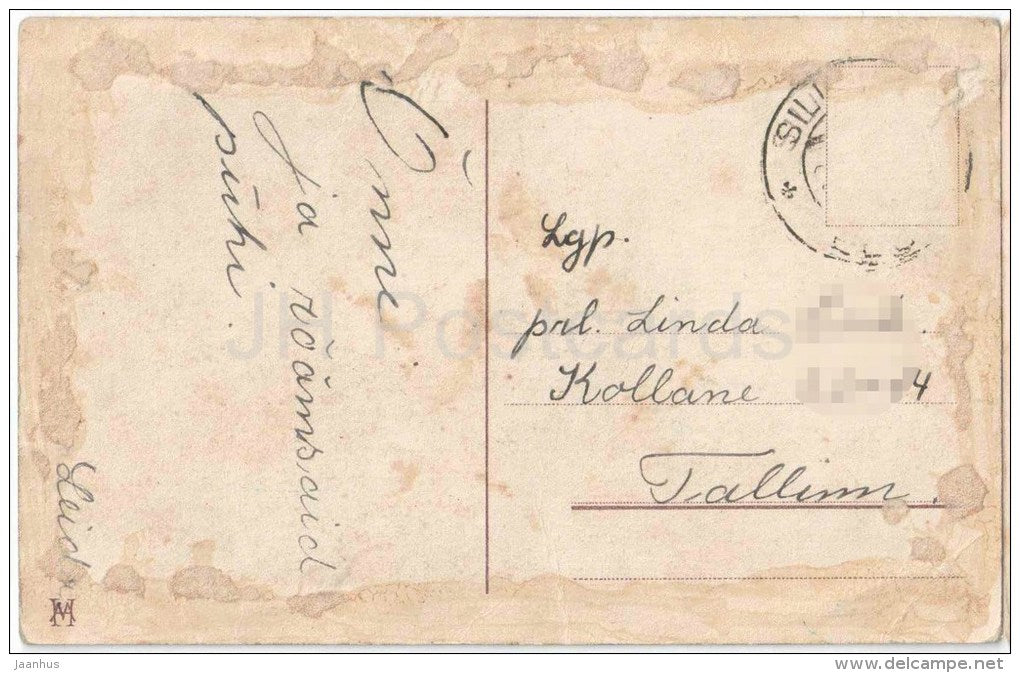 Õnne
ja rõõmsaid
pühi.
Leida
SILL
Lgp.
prl. Linda
Kollane 4
Tallinn.
JH Postcards
Jaanhus
www.delcampe.net